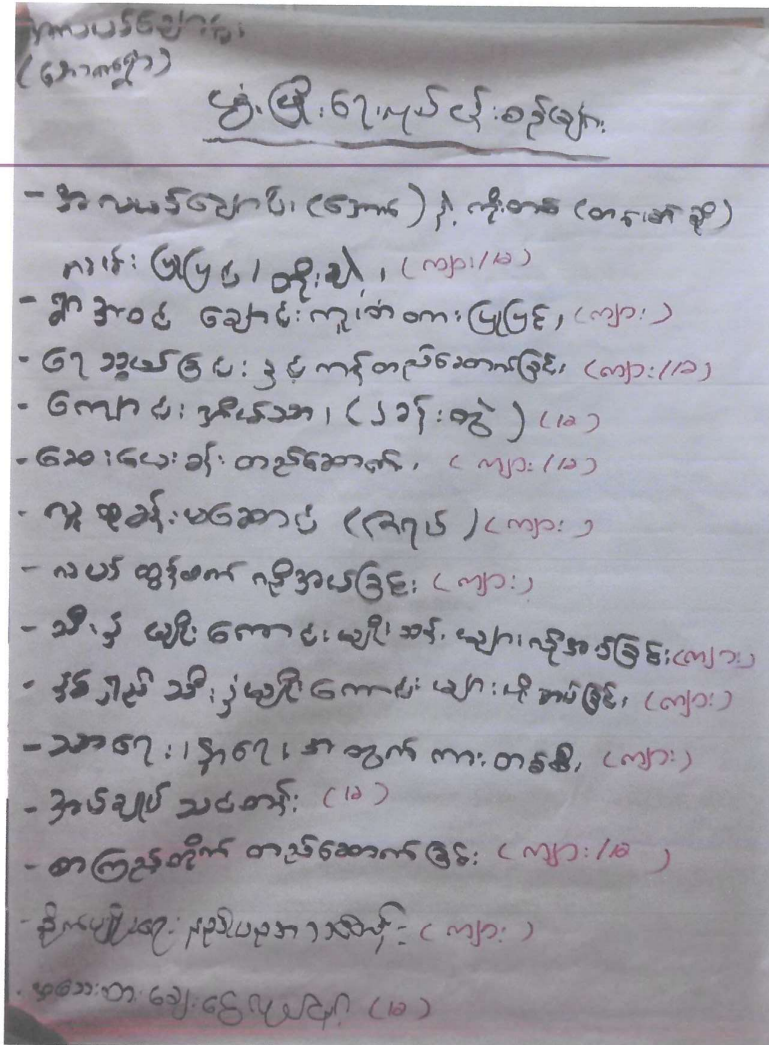 (တောကရွာ)
ဖွံ့ဖြိုးရေးလုပ်ငန်းစဉ်များ
- အလယ်ချောင်း (အောက်) နှင့် ကိုးတစ် (တနင်္ဆို)
လမ်း ပြုပြင်၊ တိုးချဲ့၊ (ကျား/မ)
- ရွာအဝင် ချောင်းကူးတံတားပြုပြင်၊ (ကျား)
- ရေသွယ်ခြင်း နှင့် ကန်တည်ဆောက်ခြင်း၊ (ကျား/မ)
- ကျောင်းအိမ်သာ၊ (၂ခန်းတွဲ) (မ)
- ဆေးပေးခန်း တည်ဆောက်၊ (ကျား/မ)
- လူထုခန်းမဆောင် (ကျား)
- လယ်ထွန်စက် လိုအပ်ခြင်း (ကျား)
- သီးနှံ မျိုးကောင်းမျိုးသန့်များ လိုအပ်ခြင်း (ကျား)
- နှစ်ရှည် သီးနှံမျိုးကောင်းများ လိုအပ်ခြင်း၊ (ကျား)
- သာရေး၊ နာရေး အတွက် ကားတစ်စီး၊ (ကျား)
- အပ်ချုပ် သင်တန်း (မ)
- စာကြည့်တိုက် တည်ဆောက်ခြင်း (ကျား/မ)
- စိုက်ပျိုးရေး နည်းပညာ (ကျား)
- ချေးငွေ (မ)